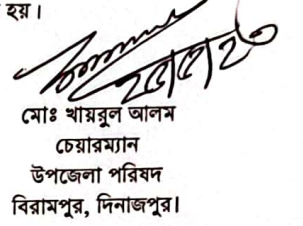 হয়।
মোঃ খায়রুল আলম
চেয়ারম্যান
উপজেলা পরিষদ
বিরামপুর, দিনাজপুর।